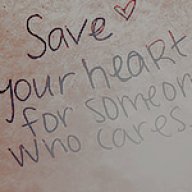 Save
your heart
for someon
who cares.